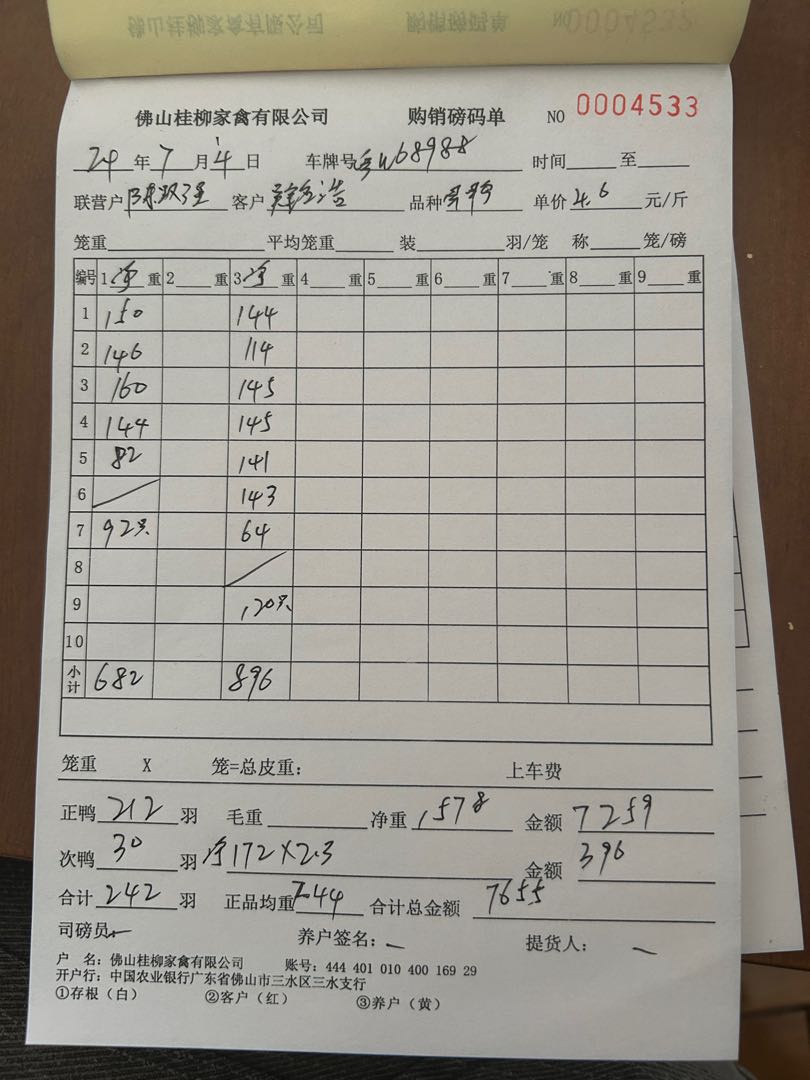 佛山桂柳家禽有限公司 购销磅码单 NO 0004533
24年7月4日 车牌号 68988 时间 至
联营户 陈双强 客户 品种 单价 4.6 元/斤
笼重 平均笼重 装 羽/笼 称 笼/磅
编号 1净重 2重 3净重 4重 5重 6重 7重 8重 9重
1 150 144
2 146 114
3 160 145
4 144 145
5 82 141
6 143
7 92只 64
8
9 120只
10
小计 682 896
笼重 X 笼=总皮重: 上车费
正鸭 212 羽 毛重 净重 1578 金额 7259
次鸭 30 羽 净172×2.3 金额 396
合计 242 羽 正品均重 7.44 合计总金额 7655
司磅员 养户签名: 提货人:
户 名: 佛山桂柳家禽有限公司 账号: 444 401 010 400 169 29
开户行: 中国农业银行广东省佛山市三水区三水支行
①存根（白） ②客户（红） ③养户（黄）